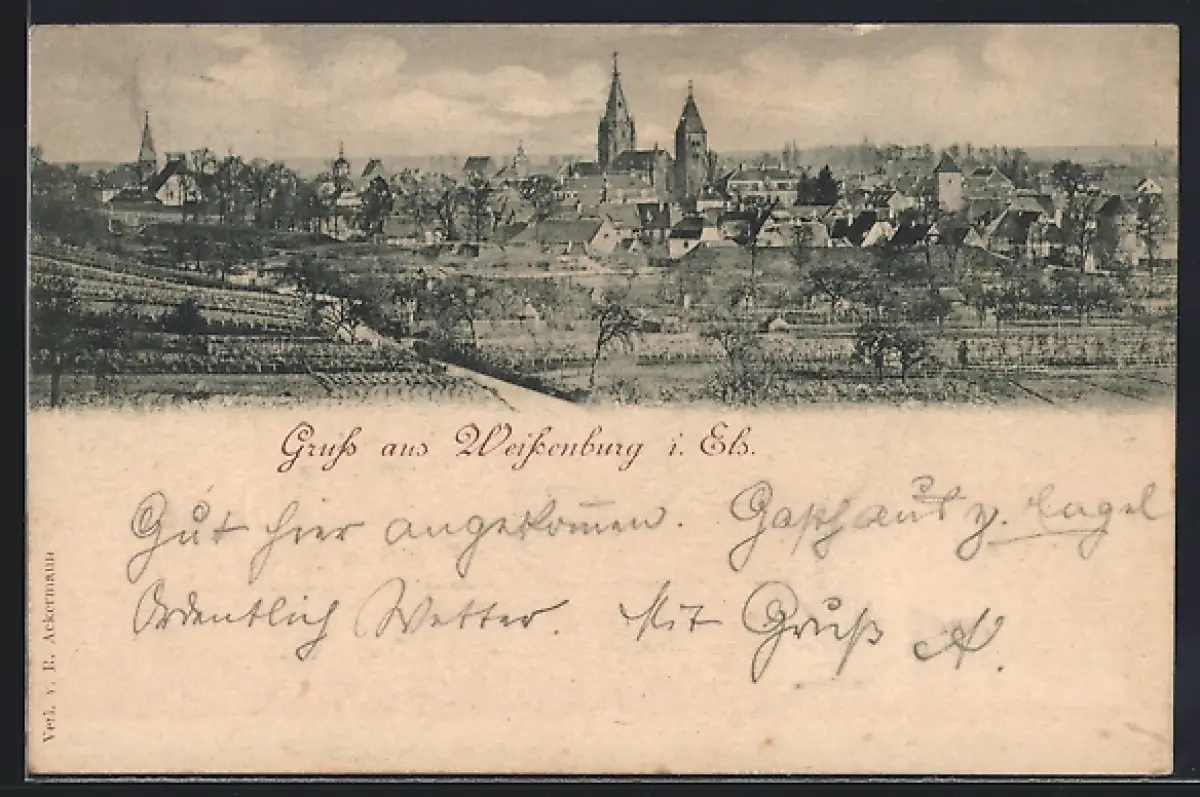 Gruß aus Weißenburg i. Els.
Gut hier angekom̄en. Gasthaus z. Engel
Ordentlich Wetter. Mit Gruß A.
Verl. v. R. Ackermann